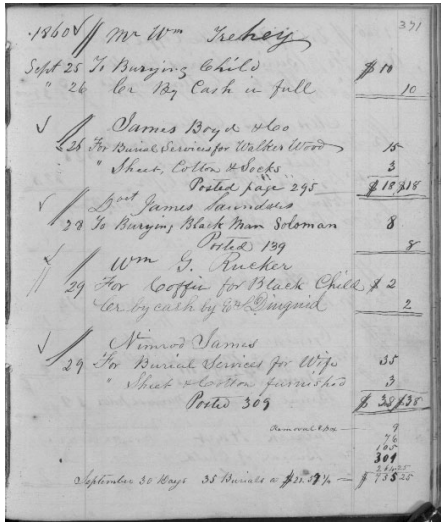 371
1860 Mr Wm Trehey
Sept 25 To Burying Child $10
" 26 Cr By Cash in full 10
James Boyd & Co
26 For Burial Services for Walker Wood 15
" Sheet, Cotton & Socks 3
Posted page 295 $18 $18
Doct James Saunders
28 To Burying Black Man Soloman 8
Posted 139 8
Wm G. Rucker
29 For Coffin for Black Child $2
Cr by cash by Diuguid 2
Nimrod James
29 For Burial Services for Wife 35
" Sheet & Cotton furnished 3
Posted 309 $38 $38
Removal & Box 9
76
105
309
September 30 Days 35 Burials a